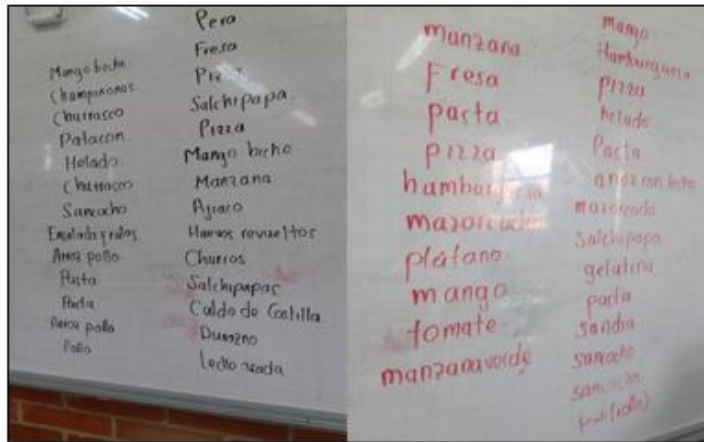 Mango biche
Champiñones
Churrasco
Patacon
Helado
Churrasco
Sancocho
Ensalada frutas
Arroz pollo
Pasta
Pasta
Arroz pollo
Pollo
Pera
Fresa
Pizza
Salchipapa
Pizza
Mango biche
Manzana
Ajiaco
Huevos revueltos
Churros
Salchipapas
Caldo de Costilla
Durazno
manzana
Fresa
pasta
pizza
hamburguesa
mazorcada
plátano
mango
tomate
manzana verde
Mango
Hamburguesa
Pizza
helado
Pasta
arroz con leche
mazorcada
Salchipapa
gelatina
pasta
sandia
sancocho